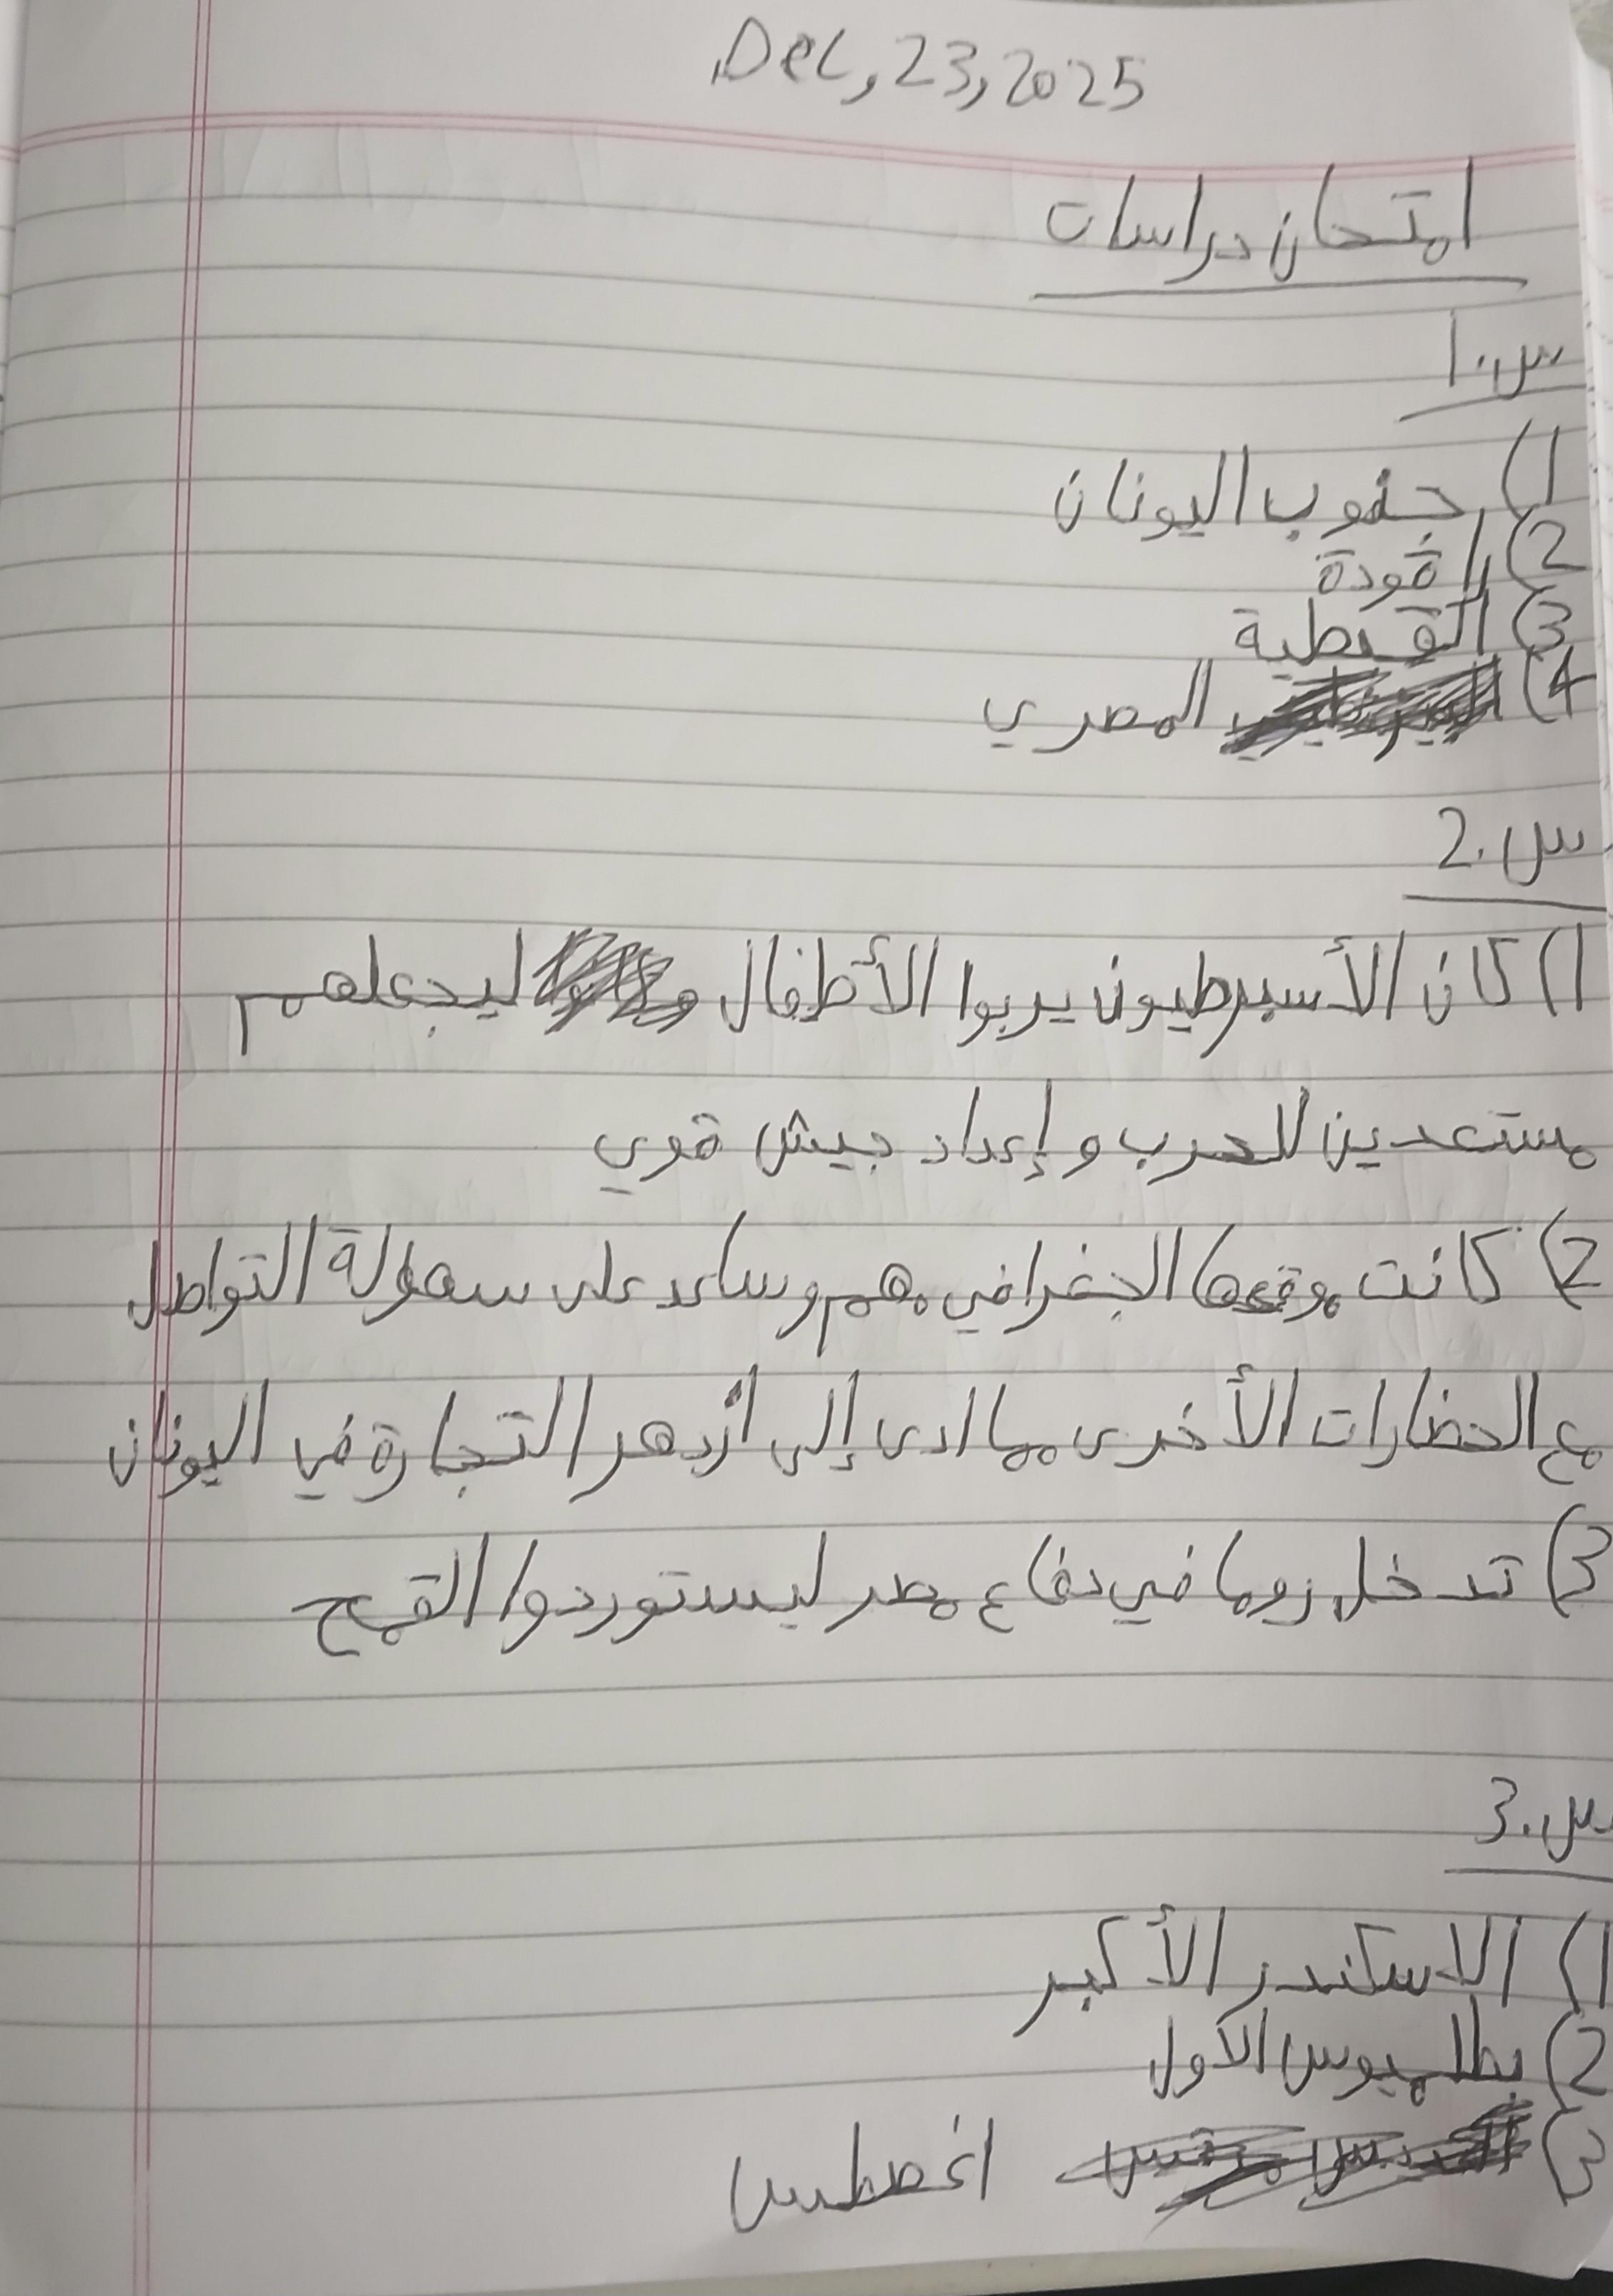 Dec, 23, 2025
امتحان دراسات
س.1
1) جنوب اليونان
2) راقودة
3) القبطية
4) المصري
س.2
1) كان الأسبرطيون يربوا الأطفال ليجعلهم
مستعدين للحرب و إعداد جيش قوي
2) كانت موقعها الجغرافي مهم وساعد على سهولة التواصل
مع الحضارات الأخرى مما ادى إلى أزدهر التجارة في اليونان
3) تدخل روما في دفاع مصر ليستوردوا القمح
س.3
1) الاسكندر الأكبر
2) بطلميوس الأول
3) اغصطس